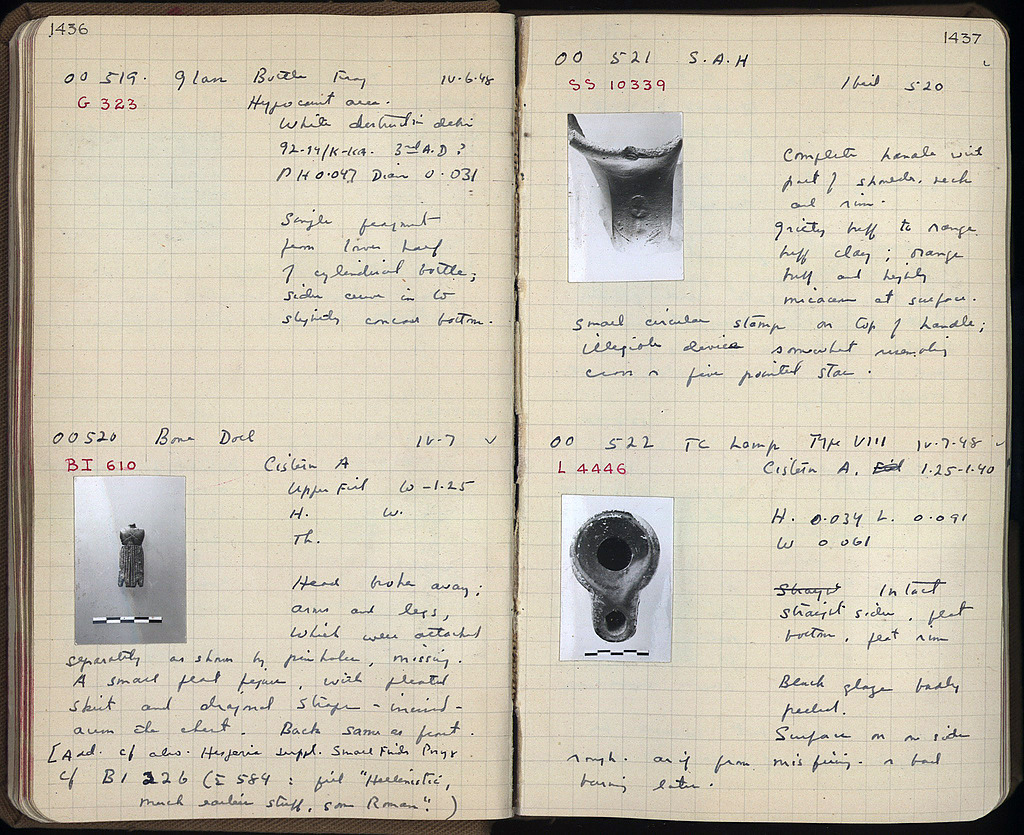 1436
OO 519. Glass Bottle Frag IV-6-48
G 323 Hypocaust area.
White destruction debris
92-94/K-KA. 3rd A.D?
PH 0.047 Diam 0.031
Single fragment
from lower half
of cylindrical bottle;
sides curve in to
slightly concave bottom.
OO 520 Bone Doll IV-7 ✓
BI 610 Cistern A
Upper Fill W -1.25
H. W.
Th.
Head broken away;
arms and legs,
which were attached
separately as shown by pinholes, missing.
A small flat figure, with pleated
skirt and diagonal straps - incised -
across the chest. Back same as front.
[Add. cf also. Hesperia Suppl. Small Finds Pnyx
cf BI 226 (Σ 584: fill "Hellenistic,
much earlier stuff, some Roman".)
1437
OO 521 S.A.H
SS 10339 Ibid 520
Complete handle with
part of shoulder, neck
and rim.
gritty buff to orange
buff clay; orange
buff and highly
micaceous at surface.
Small circular stamp on top of handle;
illegible device somewhat resembling
cross or five pointed star.
OO 522 TC Lamp Type VIII IV-7-48 ✓
L 4446 Cistern A, 1.25-1.40
H. 0.034 L. 0.091
W 0.061
Straight Intact
straight sides, flat
bottom, flat rim
Black glaze badly
peeled.
Surface on one side
rough. as if from misfiring. or bad
burning later.